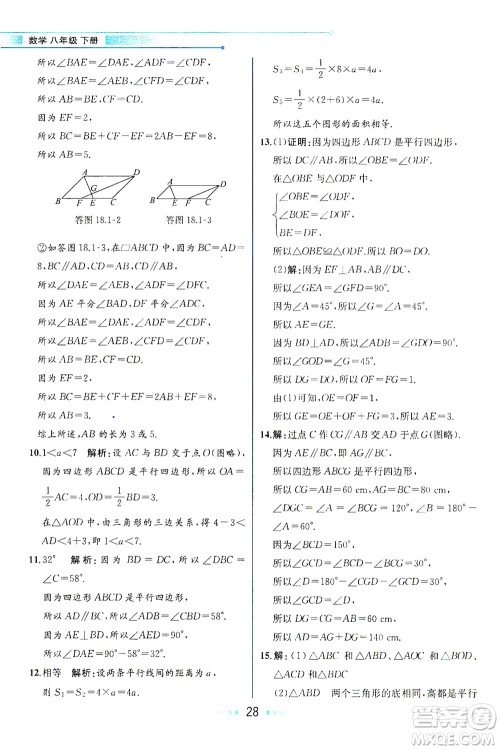 数学 八年级 下册
所以∠BAE=∠DAE,∠ADF=∠CDF,
所以∠BAE=∠AEB,∠CFD=∠CDF,
所以 AB=BE,CF=CD.
因为 EF=2,
所以 BC=BE+CF-EF=2AB-EF=8,
所以 AB=5.
A D B F E C G
A D B E F C
答图 18.1-2 答图 18.1-3
②如答图 18.1-3,在□ABCD 中,因为 BC=AD=
8,BC∥AD,CD=AB,CD∥AB,
所以∠DAE=∠AEB,∠ADF=∠CFD.
因为 AE 平分∠BAD,DF 平分∠ADC,
所以∠BAE=∠DAE,∠ADF=∠CDF,
所以∠BAE=∠AEB,∠CFD=∠CDF,
所以 AB=BE,CF=CD.
因为 EF=2,
所以 BC=BE+CF+EF=2AB+EF=8,
所以 AB=3.
综上所述,AB 的长为 3 或 5.
10.1<a<7 解析:设 AC 与 BD 交于点 O(图略),
因为四边形 ABCD 是平行四边形,所以 OA=
1/2AC=4,OD=1/2BD=3.
在△AOD 中,由三角形的三边关系,得 4-3<
a<4+3,即 1<a<7.
11.32° 解析:因为 BD=DC,所以∠DBC=
∠C=58°.
因为四边形 ABCD 是平行四边形,
所以 AD∥BC,所以∠ADB=∠DBC=58°.
因为 AE⊥BD,所以∠AED=90°,
所以∠DAE=90°-∠ADB=90°-58°=32°.
12.相等 解析:设两条平行线间的距离为 a,则
S₁=S₂=1/2×8×a=4a,
S₃=8×1/2×a=4a,
S₄=1/2×8×a=4a,
S₅=1/2×(2+6)×a=4a,
所以这五个图形的面积相等.
13.(1)证明:因为四边形 ABCD 是平行四边形,
所以 DC∥AB,所以∠OBE=∠ODF.
在△OBE 与△ODF 中,
∠OBE=∠ODF,
∠BOE=∠DOF,
BE=DF,
所以△OBE≌△ODF,所以 BO=DO.
(2)解:因为 EF⊥AB,AB∥DC,
所以∠GEA=∠GFD=90°.
因为∠A=45°,所以∠G=∠A=45°,
所以 AE=GE.
因为 BD⊥AD,所以∠ADB=∠GDO=90°,
所以∠GOD=∠G=45°,
所以 DG=DO,所以 OF=FG=1.
由(1)可知,OE=OF=1,
所以 GE=OE+OF+FG=3,所以 AE=3.
14.解:过点 C 作 CG∥AB 交 AD 于点 G(图略).
因为 AD∥BC,
所以四边形 ABCG 是平行四边形,
所以∠BCG=∠A=120°,
∠DGC=∠A=120°.
因为∠BCD=150°,
所以∠GCD=∠BCD-∠BCG=30°.
因为∠D=180°-∠DGC-∠GCD=30°,
所以∠D=∠GCD,
所以 CG=DG.
因为四边形 ABCG 是平行四边形,
所以 DG=CG=AB=60 cm,
AG=BC=80 cm,
所以 AD=AG+DG=140 cm.
15.解:(1)△ABC 和△DBC,△ABO 和△CDO,
△ADB 和△ADC
(2)△ABC 两个三角形的底相同,高都是平行
28